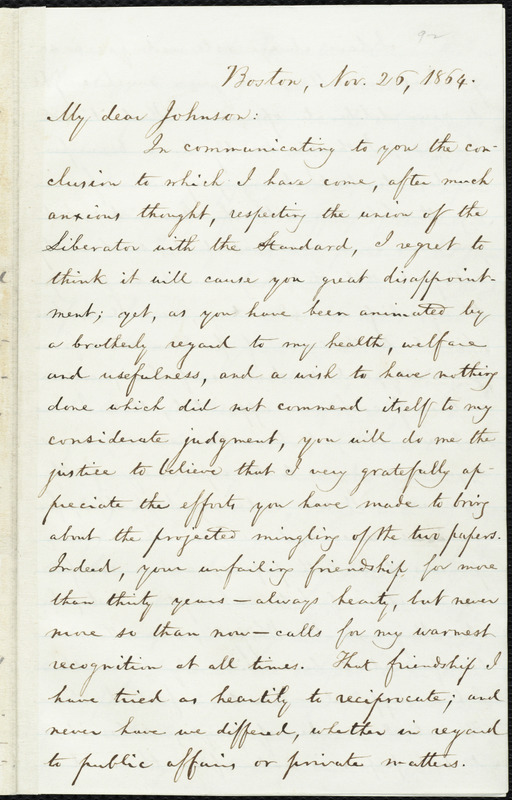 92
Boston, Nov. 26, 1864.
My dear Johnson:
In communicating to you the con-
clusion to which I have come, after much
anxious thought, respecting the union of the
Liberator with the Standard, I regret to
think it will cause you great disappoint-
ment; yet, as you have been animated by
a brotherly regard to my health, welfare
and usefulness, and a wish to have nothing
done which did not commend itself to my
considerate judgment, you will do me the
justice to believe that I very gratefully ap-
preciate the efforts you have made to bring
about the projected mingling of the two papers.
Indeed, your unfailing friendship for more
than thirty years — always hearty, but never
more so than now — calls for my warmest
recognition at all times. That friendship I
have tried as heartily to reciprocate; and
never have we differed, whether in regard
to public affairs or private matters.